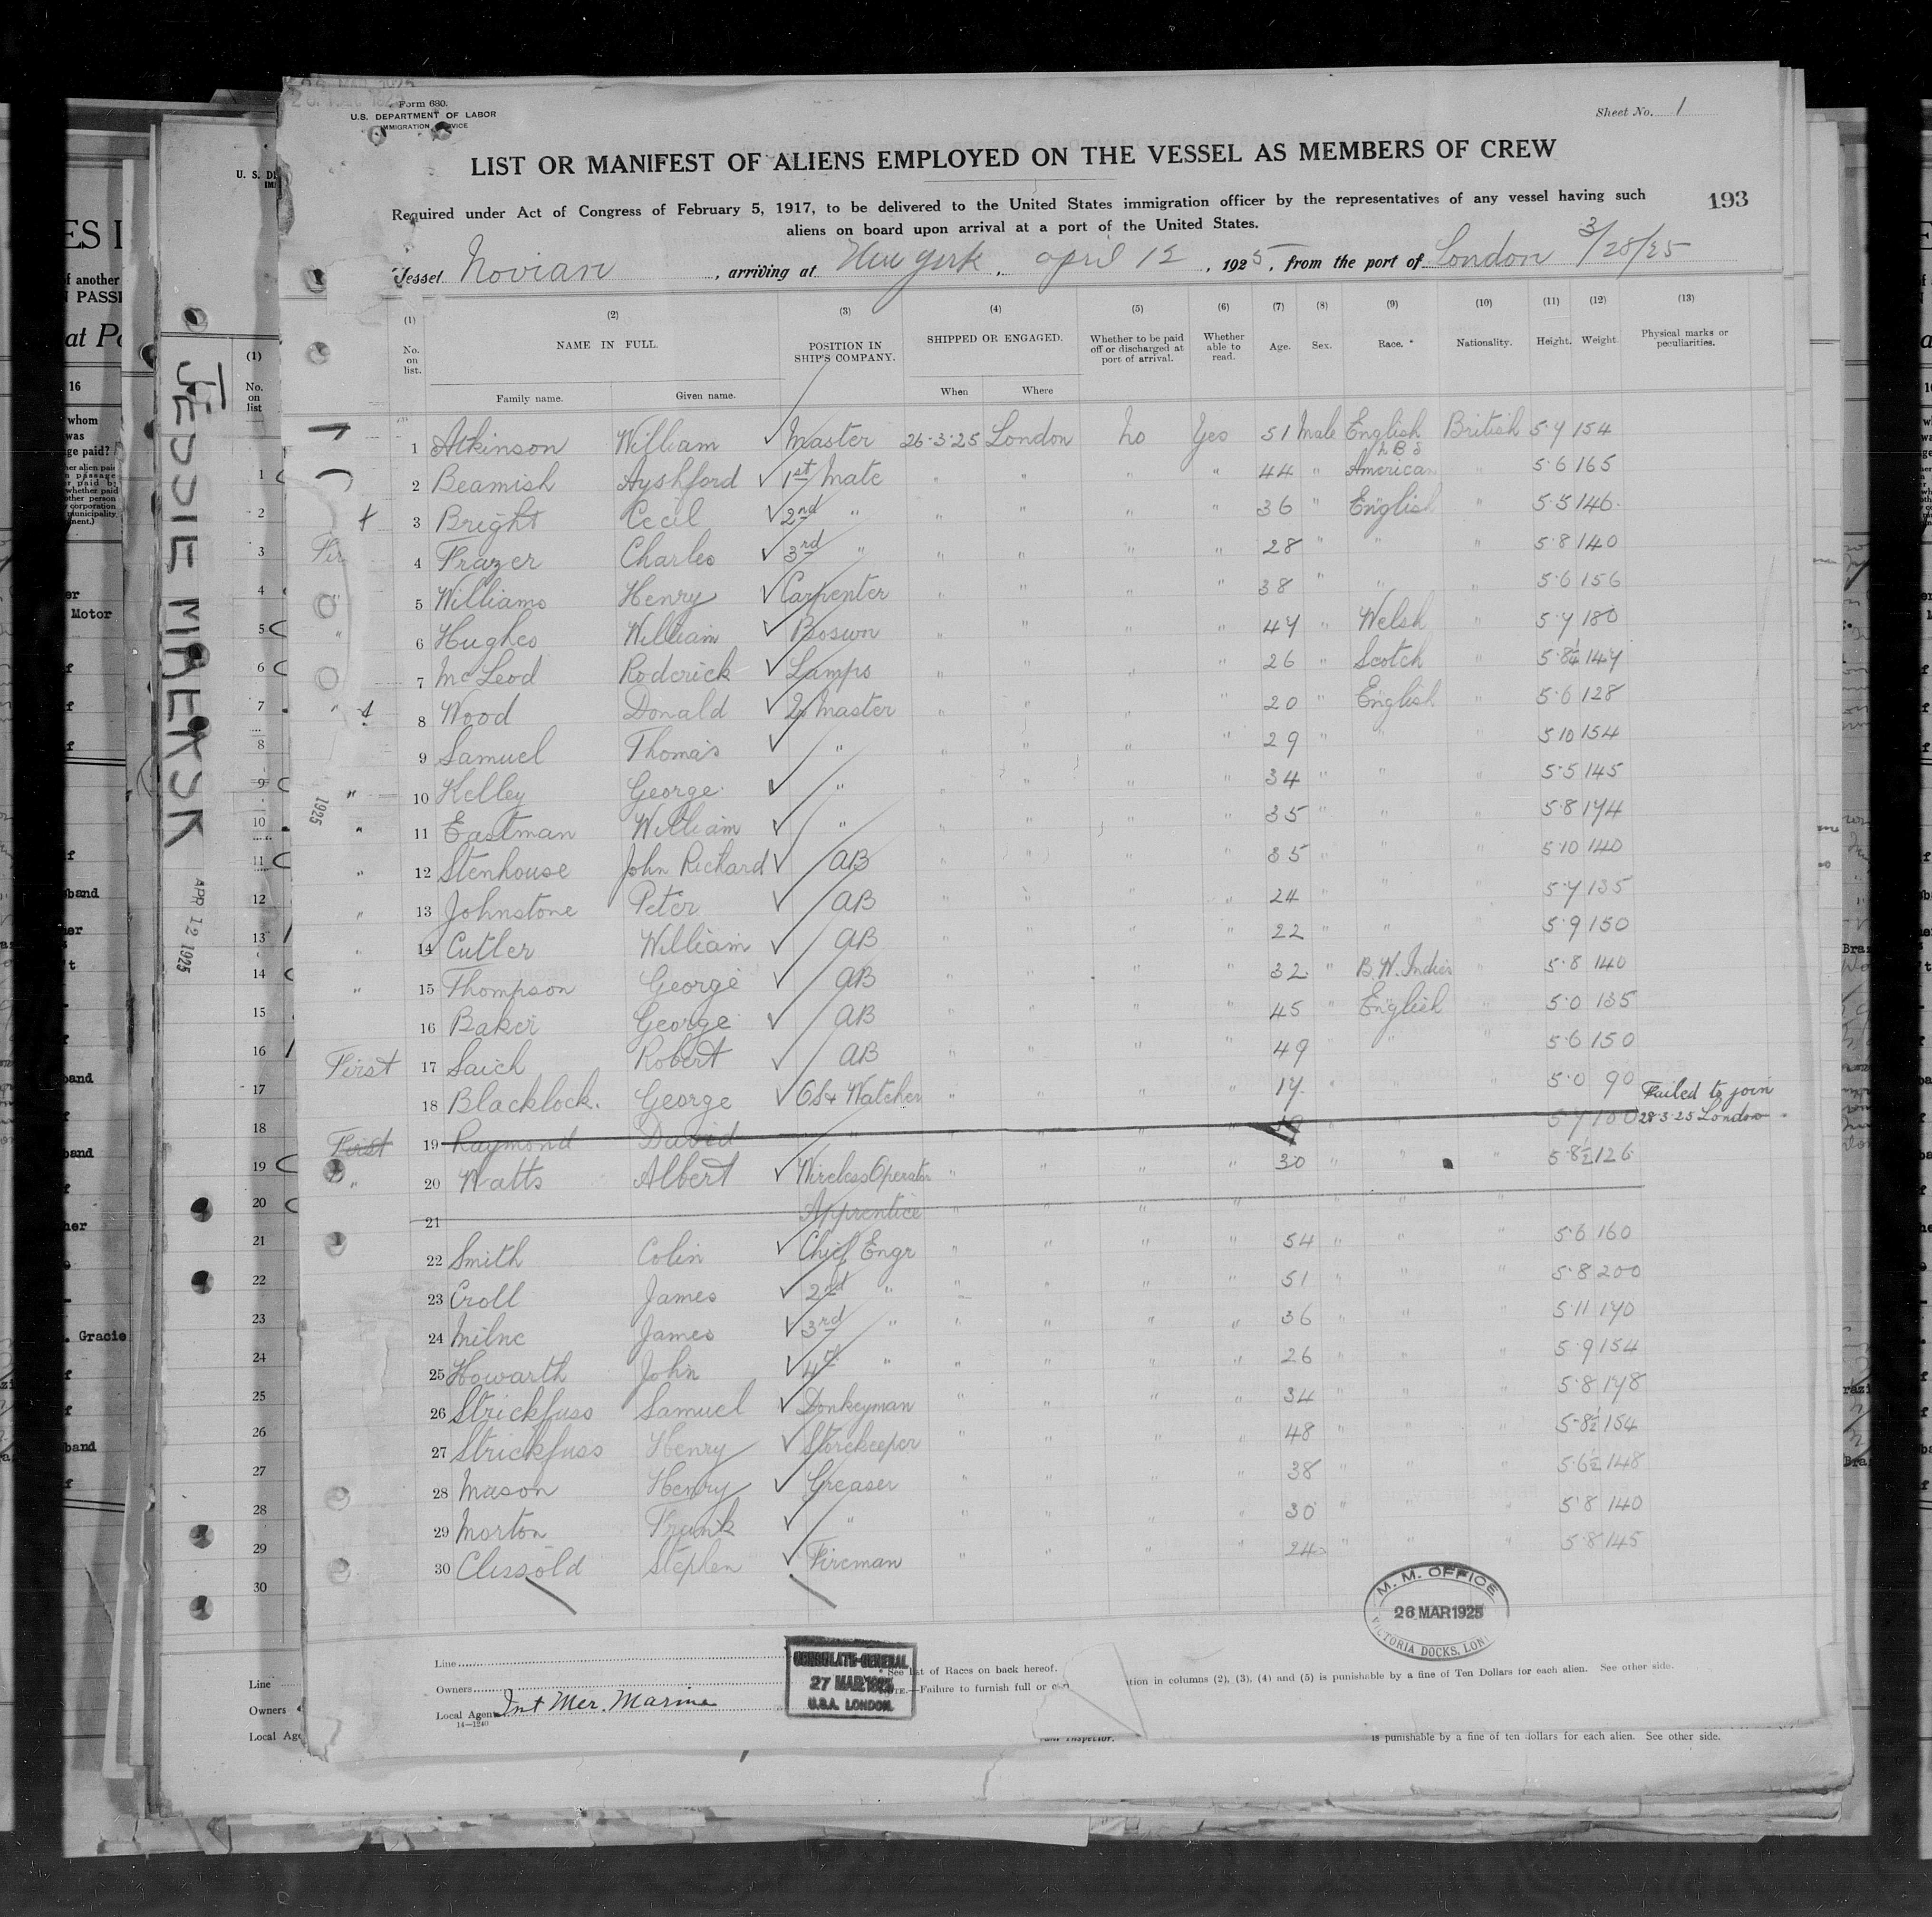 Form 680.
U.S. DEPARTMENT OF LABOR
IMMIGRATION SERVICE
Sheet No. 1
LIST OR MANIFEST OF ALIENS EMPLOYED ON THE VESSEL AS MEMBERS OF CREW
Required under Act of Congress of February 5, 1917, to be delivered to the United States immigration officer by the representatives of any vessel having such
193
aliens on board upon arrival at a port of the United States.
Vessel Novian, arriving at New York, april 12, 1925, from the port of London 3/28/25
(1) (2) (3) (4) (5) (6) (7) (8) (9) (10) (11) (12) (13)
No. on list. NAME IN FULL. POSITION IN SHIP'S COMPANY. SHIPPED OR ENGAGED. Whether to be paid off or discharged at port of arrival. Whether able to read. Age. Sex. Race.* Nationality. Height. Weight. Physical marks or peculiarities.
Family name. Given name. When Where
1 Atkinson William ✓ Master 26·3·25 London no Yes 51 Male English British 5·7 154
2 Beamish Ayshford ✓ 1st Mate " " " " 44 " American 5·6 165
3 Bright Cecil ✓ 2nd " " " " " 36 " English " 5·5 146
4 Frazer Charles ✓ 3rd " " " " " 28 " " " 5·8 140
5 Williams Henry ✓ Carpenter " " " " 38 " " " 5·6 156
6 Hughes William ✓ Boswn " " " " 47 " Welsh " 5·7 180
7 McLeod Roderick ✓ Lamps " " " " 26 " Scotch " 5·8¼ 147
8 Wood Donald ✓ Master " " " " 20 " English " 5·6 128
9 Samuel Thomas ✓ " " " " " 29 " " " 5·10 154
" 10 Kelley George ✓ " " " " " 34 " " " 5·5 145
" 11 Eastman William ✓ " " " " " 35 " " " 5·8 174
" 12 Stenhouse John Richard ✓ AB " " " " 35 " " " 5·10 140
" 13 Johnstone Peter ✓ AB " " " " 24 " " " 5·7 135
14 Cutler William ✓ AB " " " " 22 " " " 5·9 150
" 15 Thompson George ✓ AB " " " " 32 " B.W.Indies " 5·8 140
16 Baker George ✓ AB " " " " 45 " English " 5·0 135
First 17 Saich Robert ✓ AB " " " " 49 " " " 5·6 150
18 Blacklock. George ✓ OS & Watcher " " " " 17 5·0 90 Failed to join
First 19 Raymond David " 28·3·25 London
" 20 Watts Albert ✓ Wireless Operator " " " " 30 " " " 5·8½ 126
21 Apprentice " " " " " " "
22 Smith Colin ✓ Chief Engr " " " " 54 " " " 5·6 160
23 Croll James ✓ 2nd " " " " " 51 " " " 5·8 200
24 Milne James ✓ 3rd " " " " " 36 " " " 5·11 170
25 Howarth John ✓ 4th " " " " " 26 " " " 5·9 154
26 Strickfuss Samuel ✓ Donkeyman " " " " 34 " " " 5·8 178
27 Strickfuss Henry ✓ Storekeeper " " " " 48 " " " 5·8½ 154
28 Mason Henry ✓ Greaser " " " " 38 " " " 5·6½ 148
29 Morton Frank ✓ " " " " " 30 " " " 5·8 140
30 Clissold Stephen ✓ Fireman " " " " 24 " " " 5·8 145
M. M. OFFICE
26 MAR 1925
VICTORIA DOCKS, LON
Line
Owners
Local Agents Int Mer. Marine
14—1240
CONSULATE-GENERAL
27 MAR 1925
U.S.A. LONDON.
* See list of Races on back hereof.
NOTE.—Failure to furnish full or
tion in columns (2), (3), (4) and (5) is punishable by a fine of Ten Dollars for each alien. See other side.
is punishable by a fine of ten dollars for each alien. See other side.
JESSIE MAERSK
APR 12 1925
1925
U. S. DE
(1)
No. on list
1
2
3
4
5
6
7
8
9
10
11
12
13
14
15
16
17
18
19
20
21
22
23
24
25
26
27
28
29
30
Line
Owners
Local Age
ES I
of another
PASS
at Po
16
whom
was
ge paid?
Motor
band
. Gracie
Inspector.